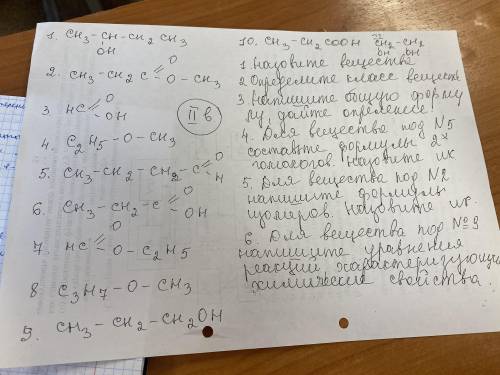 1. CH₃-CH-CH₂ CH₃
OH
2. CH₃-CH₂ C=O
O-CH₃
3. HC=O
OH
II в
4. C₂H₅-O-CH₃
5. CH₃-CH₂-CH₂-C=O
H
6. CH₃-CH₂-C=O
OH
7. HC=O
O-C₂H₅
8. C₃H₇-O-CH₃
9. CH₃-CH₂-CH₂OH
10. CH₃-CH₂ COOH CH₂-CH₂
OH OH
1. Назовите вещества
2 Определите класс веществ
3. Напишите общую форму
лу, дайте определение!
4. Для вещества под N5
составьте формулы 2х
гомологов. Назовите их
5. Для вещества под №2
напишите формулы
изомеров. Назовите их.
6. Для вещества под №9
напишите уравнения
реакции характеризующих
химические свойства.